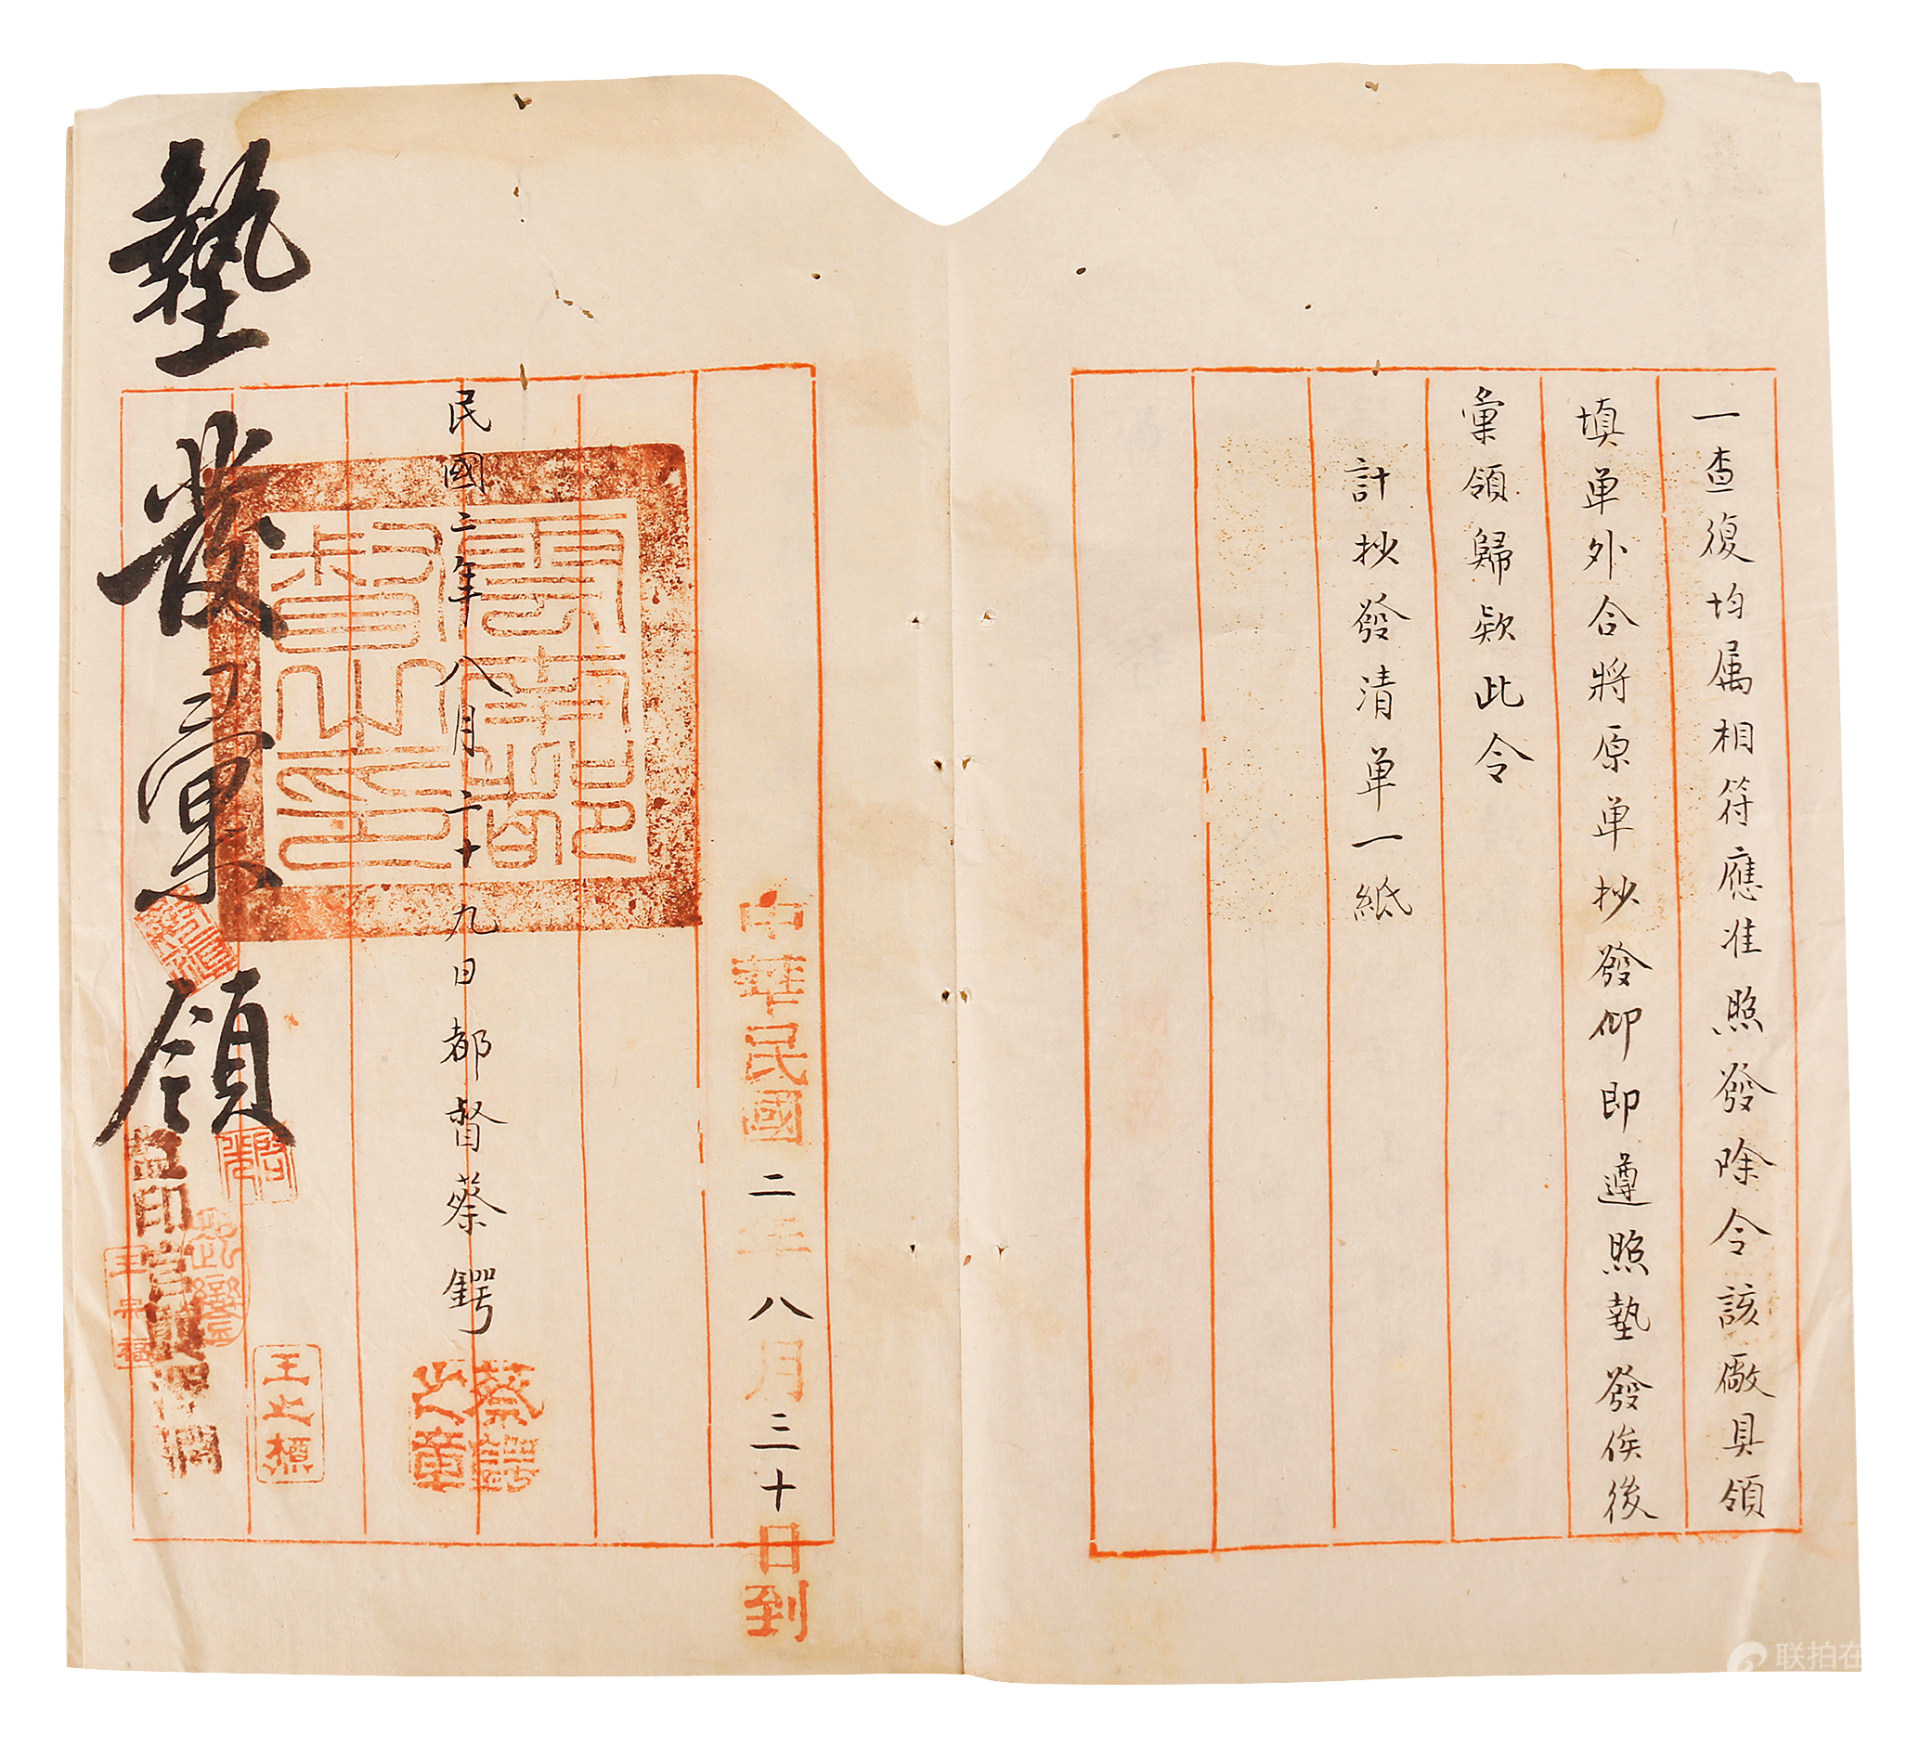 一查復均属相符應准照發除令該廠具領
填单外合將原单抄發仰即遵照墊發俟後
彙領歸欵此令
計抄發清单一紙
中華民國二年八月三十日到
雲南都督之印
民國二年八月二十九日都督蔡鍔
蔡鍔之章
墊發彙領
王之楨
監印官
联拍在